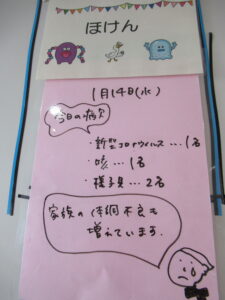 ほけん
1月14日(水)
今日の病欠
・新型コロナウィルス…1名
・咳…1名
・様子見…2名
家族の体調不良も
増えています。